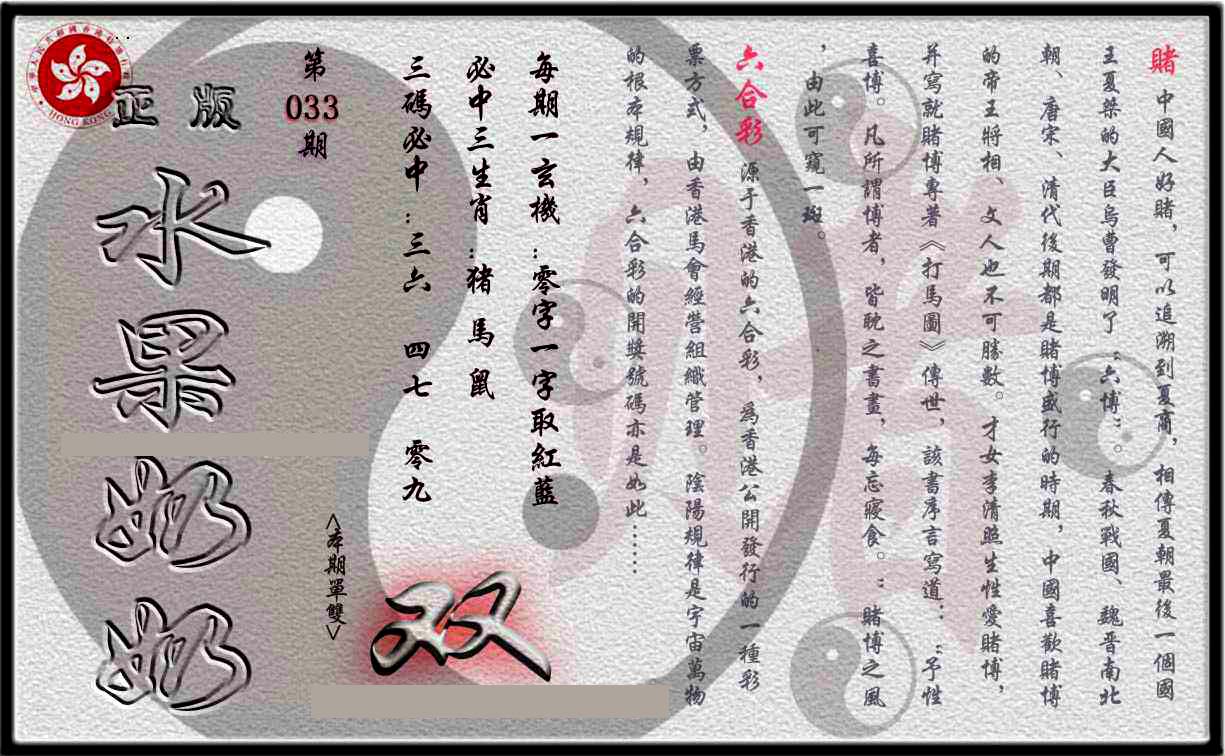 賭 中國人好賭，可以追溯到夏商，相傳夏朝最後一個國
王夏桀的大臣烏曹發明了“六博”。春秋戰國、魏晉南北
朝、唐宋、清代後期都是賭博盛行的時期，中國喜歡賭博
的帝王將相、文人也不可勝數。才女李清照生性愛賭博，
并寫就賭博專著《打馬圖》傳世，該書序言寫道：“予性
喜博。凡所謂博者，皆耽之書畫，每忘寢食。”賭博之風
，由此可窺一斑。
六合彩 源于香港的六合彩，為香港公開發行的一種彩
票方式，由香港馬會經營組織管理。陰陽規律是宇宙萬物
的根本規律，六合彩的開獎號碼亦是如此……
每期一玄機：零字一字取紅藍
必中三生肖：猪 馬 鼠
三碼必中：三六 四七 零九
<本期單雙>
双
第
033
期
正版
水果奶奶
HONG KONG